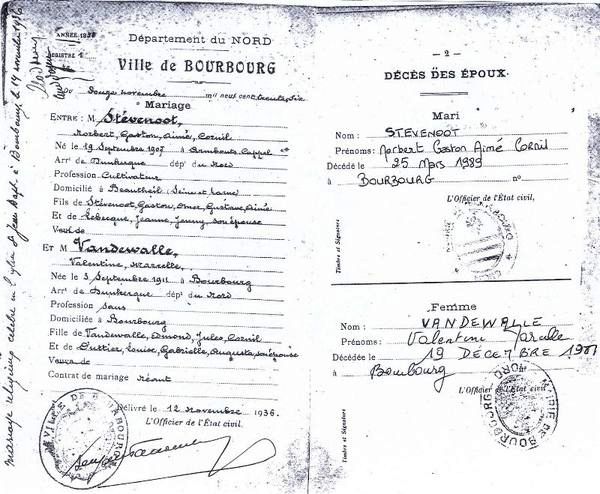 ANNÉE 1936
REGISTRE 1
Département du NORD
Ville de BOURBOURG
Du douze novembre mil neuf cent trente, six
Mariage
ENTRE : M Stévenoot,
Norbert, Gaston, Aimé, Cornil
Né le 19 Septembre 1907 à Armbouts Cappel
Arrt de Dunkerque dépt du Nord
Profession Cultivateur
Domicilié à Beautheil (Seine et Marne)
Fils de Stévenoot, Gaston, Omer, Gustave, Aimé
Et de Lebecque, Jeanne, Jenny, son épouse
Veuf de
ET M Vandewalle,
Valentine, Marcelle
Née le 3 Septembre 1911 à Bourbourg
Arrt de Dunkerque dépt du Nord
Profession sans
Domiciliée à Bourbourg
Fille de Vandewalle, Edmond, Jules, Cornil
Et de Louise, Gabrielle, Augusta, son épouse
Veuve de
Contrat de mariage Néant
Délivré le 12 Novembre 1936.
L'Officier de l'État civil,
VILLE DE BOURBOURG
mariage religieux célébré en l'église St Jean Bapt. à Bourbourg le 14 novembre 1936
— 2 —
DÉCÈS DES ÉPOUX
Mari
Nom : STEVENOOT
Prénoms : Norbert Gaston Aimé Cornil
Décédé le 25 Mars 1989
à BOURBOURG n°
L'Officier de l'État civil,
Timbre et Signature
Femme
Nom : VANDEWALLE
Prénoms : Valentine Marcelle
Décédée le 19 DÉCEMBRE
à Bourbourg
L'Officier de l'État civil,
Timbre et Signature
MAIRIE DE BOURBOURG
NORD